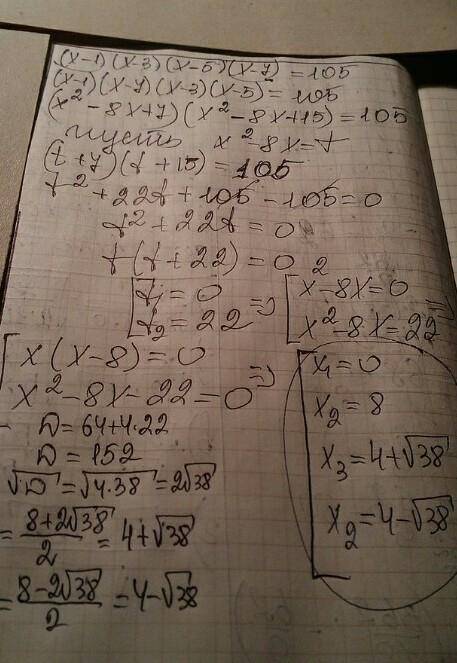 (x-1)(x-3)(x-5)(x-7)=105
(x-1)(x-7)(x-3)(x-5)=105
(x²-8x+7)(x²-8x+15)=105
пусть x²-8x=t
(t+7)(t+15)=105
t²+22t+105-105=0
t²+22t=0
t(t+22)=0
[t₁=0
t₂=22 => [x²-8x=0
x²-8x=22 =>
[x(x-8)=0
x²-8x-22=0 =>
D=64+4·22
D=152
√D=√4·38=2√38
=8+2√38/2=4+√38
=8-2√38/2=4-√38
[x₁=0
x₂=8
x₃=4+√38
x₂=4-√38